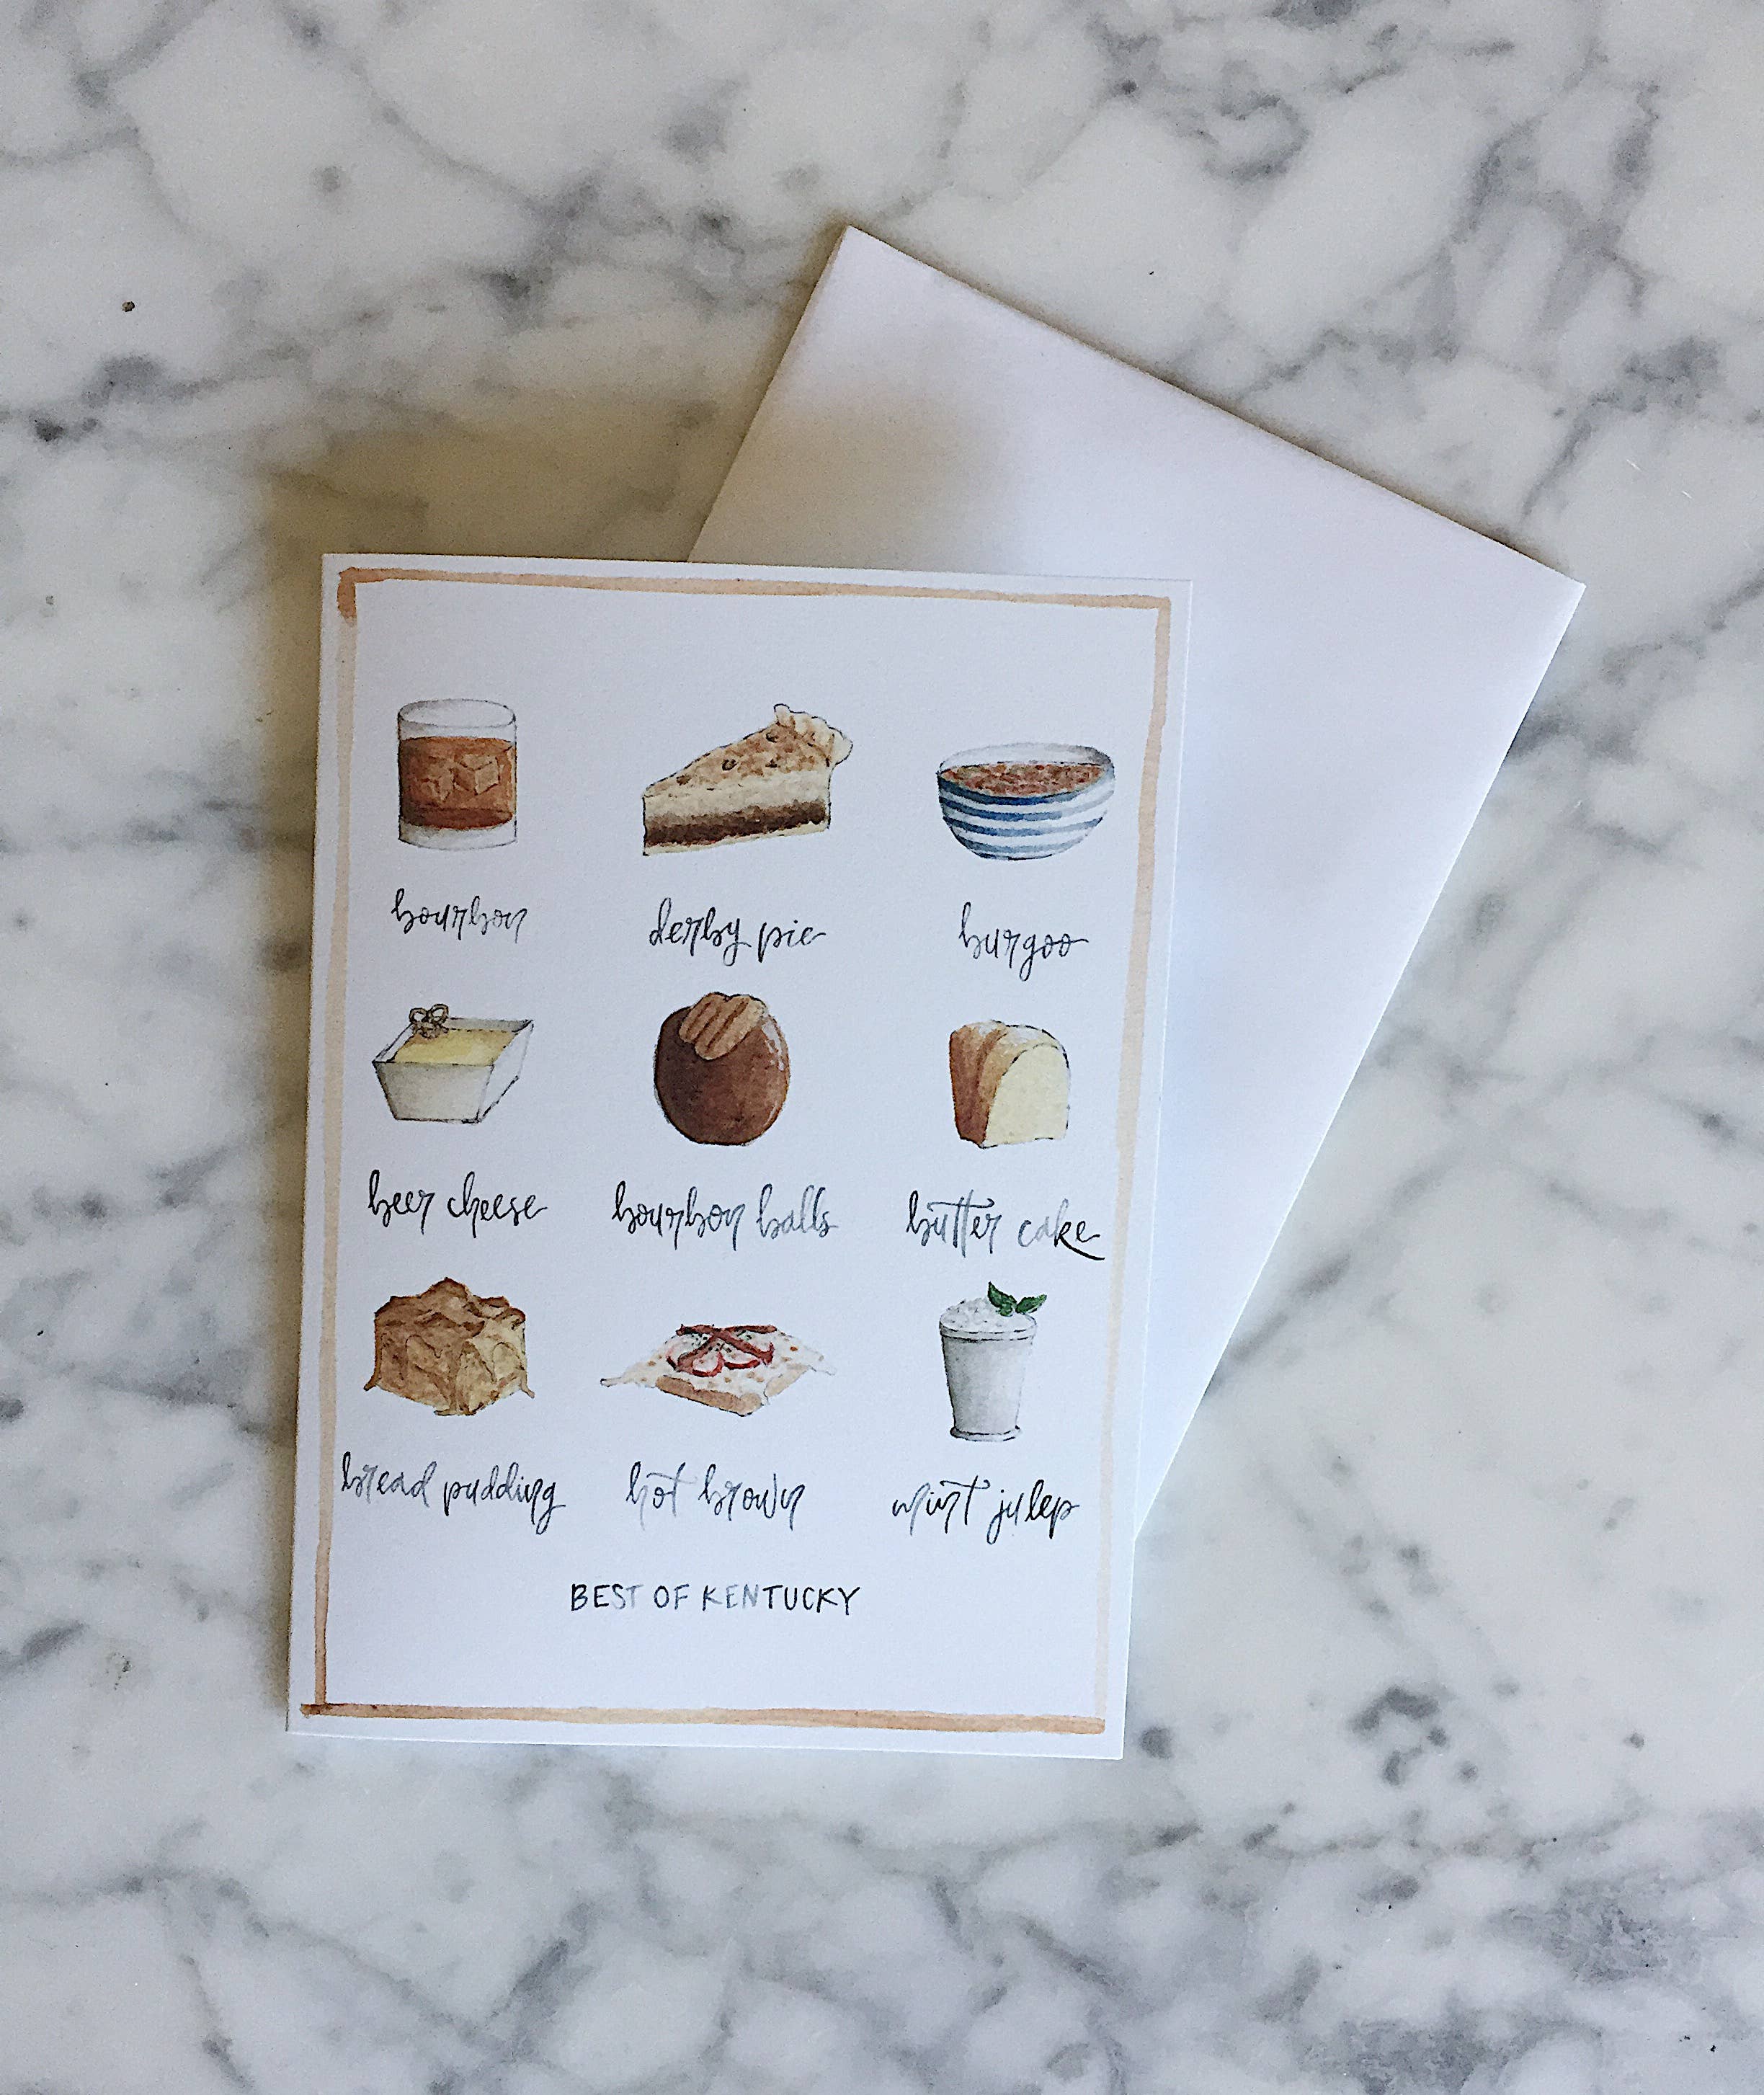 bourbon
derby pie
burgoo
beer cheese
bourbon balls
butter cake
bread pudding
hot brown
mint julep
BEST OF KENTUCKY